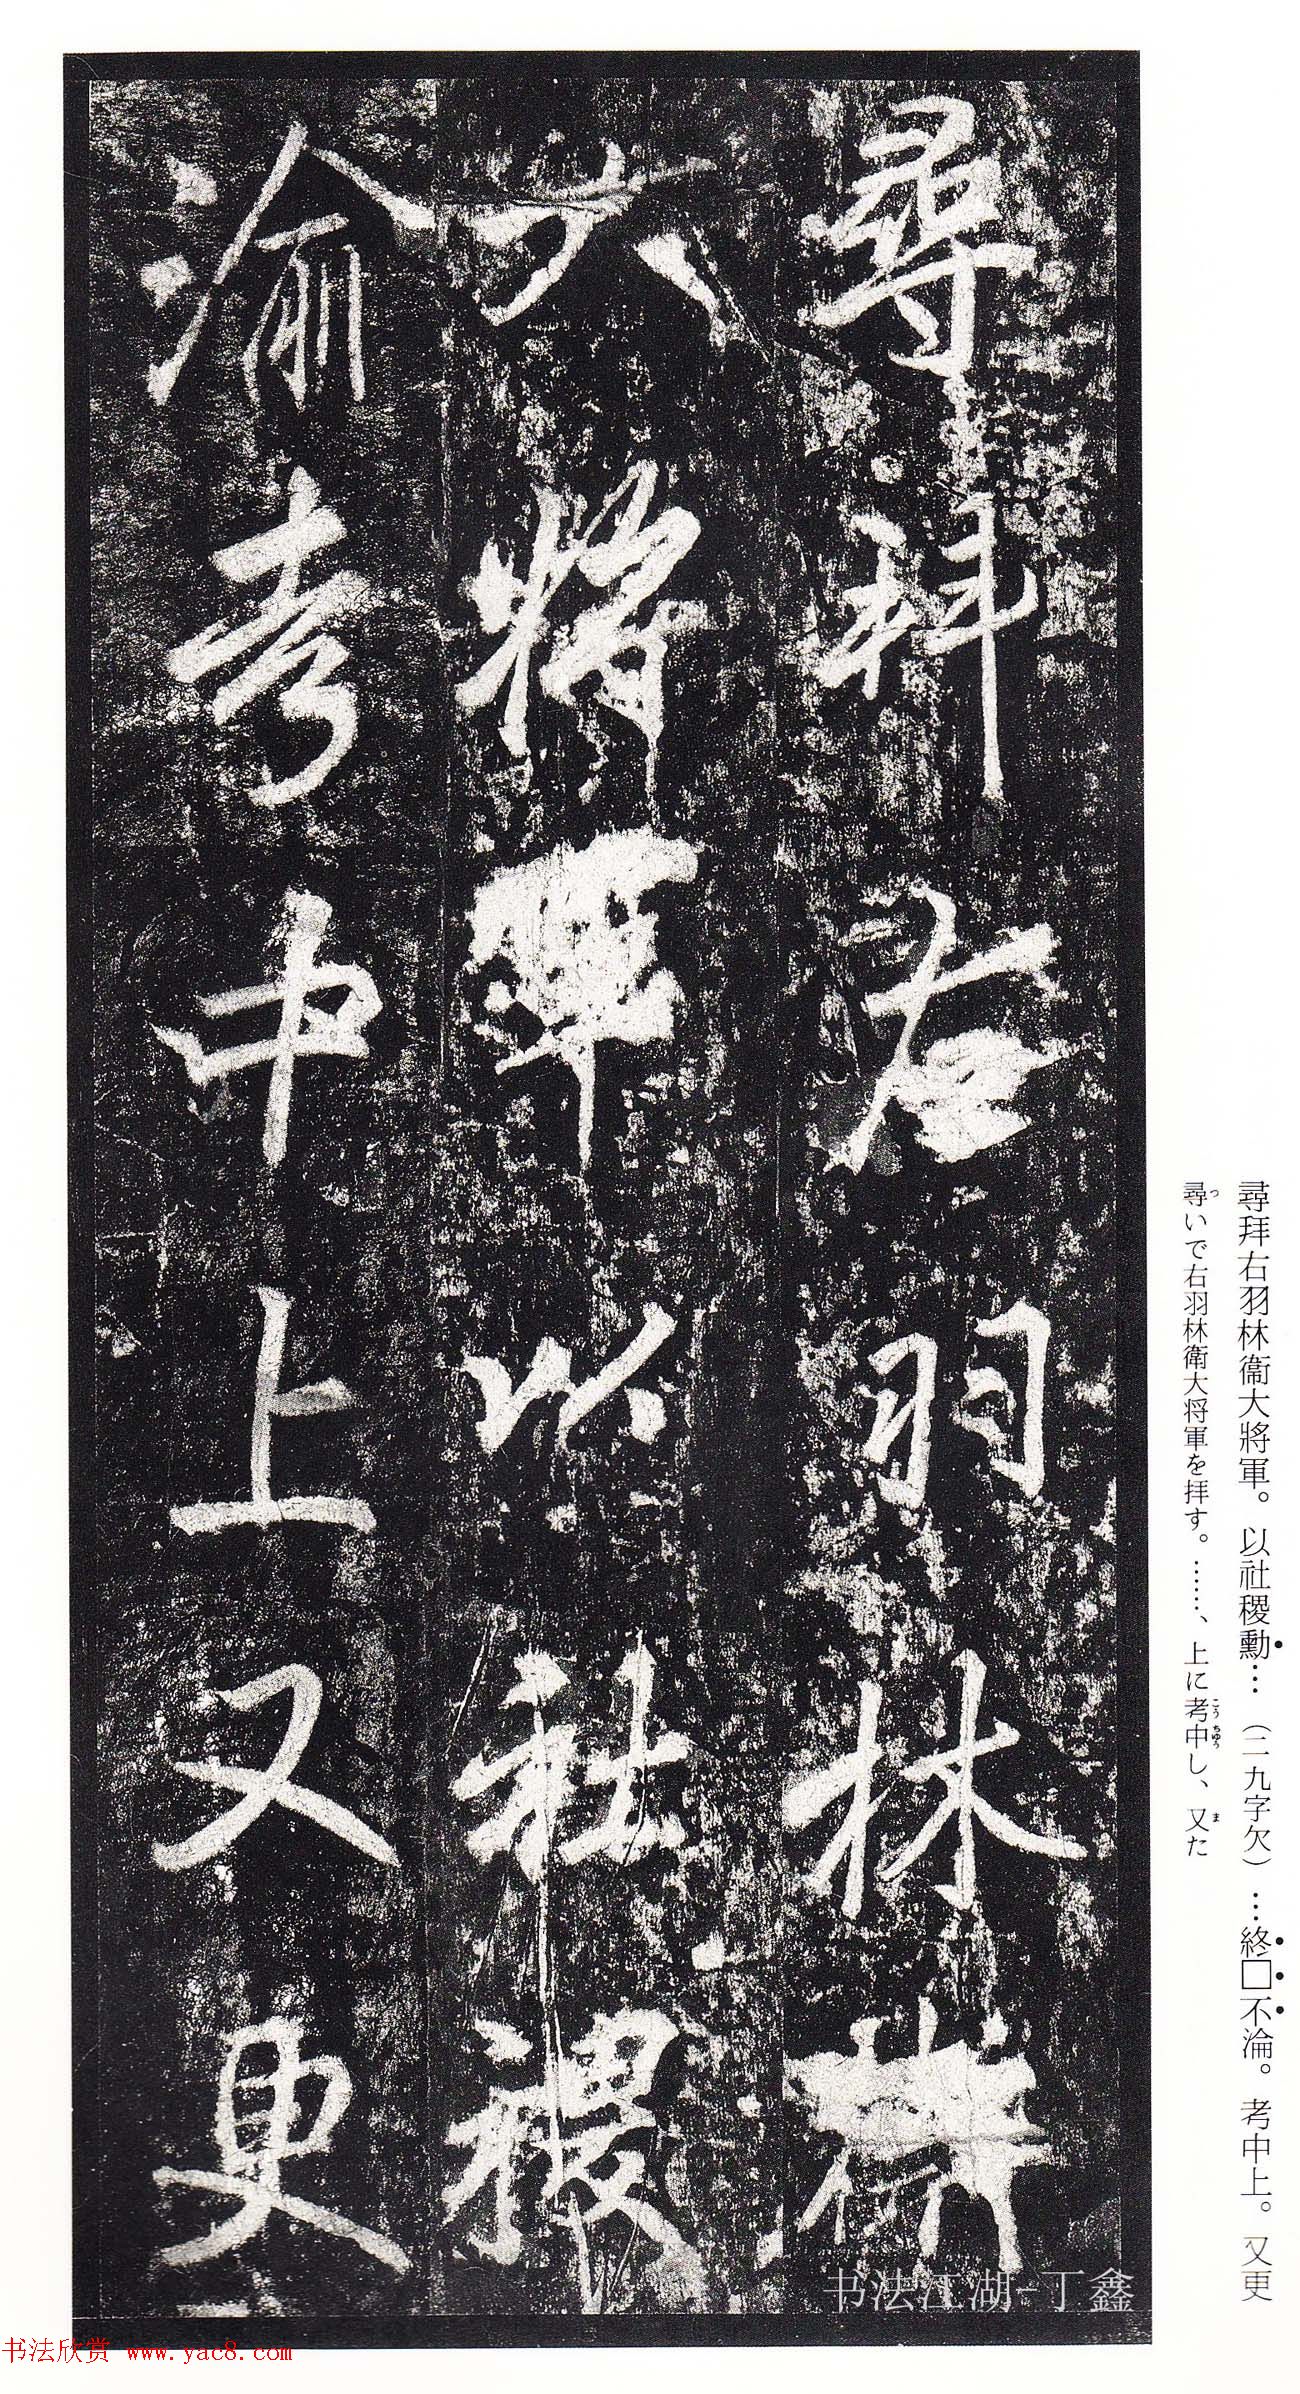 尋拜右羽林衞大將軍。以社稷勳…（二九字欠）…終□不淪。考中上。又更
尋いで右羽林衛大将軍を拝す。……、上に考中し、又た
つ
こうちゅう
ま
尋拜右羽林衞
大將軍以社稷
淪考中上又更
书法江湖-丁鑫
书法欣赏 www.yac8.com